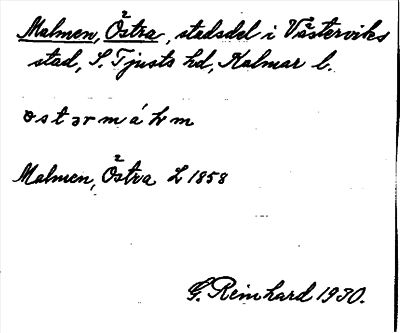 Malmen, Östra, stadsdel i Västerviks
stad, S. Tjusts hd, Kalmar l.
Malmen, Östra L 1858
G. Reinhard 1930.